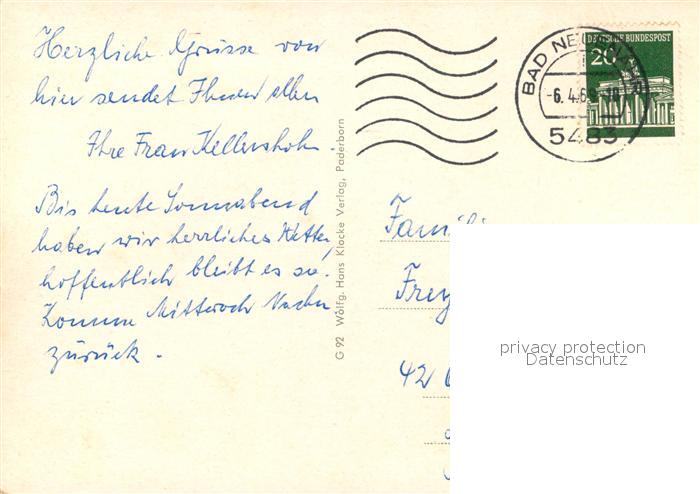 Herzliche Grüsse von
hier sendet Ihnen allen
Ihre Frau Kellershohn.
Bis heute Sonnabend
haben wir herrliches Wetter,
hoffentlich bleibt es so.
Komme Mittwoch Nachm
zurück.
G 92 Wolfg. Hans Klocke Verlag, Paderborn
DEUTSCHE BUNDESPOST
20
BAD NEUENAHR
-6.4.69
5483
Famili
Frey
42
privacy protection
Datenschutz